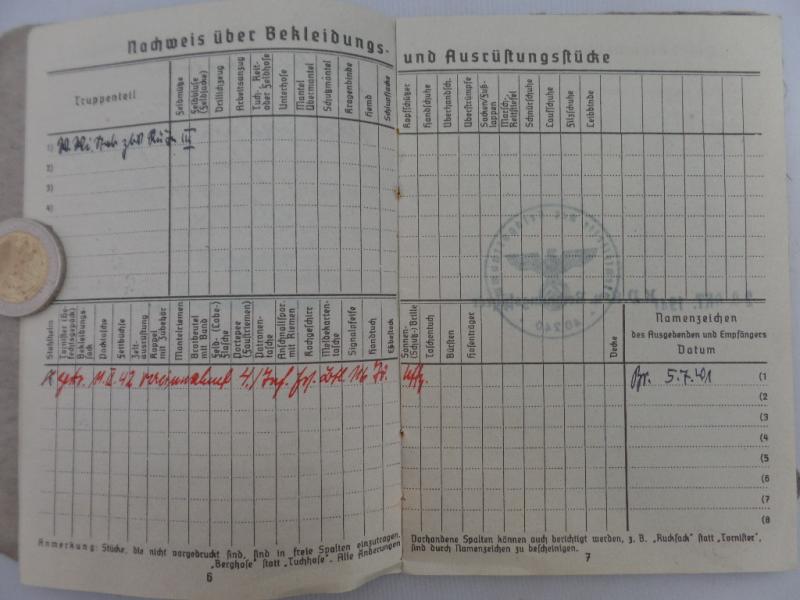 Nachweis über Bekleidungs- und Ausrüstungsstücke
Truppenteil
Feldmütze
Feldbluse (Feldjacke)
Drillichzeug
Arbeitsanzug
Tuch- Reit- oder Feldhose
Unterhose
Mantel Übermantel
Schutzmäntel
Kragenbinde
Hemd
Schlupfjacke
Kopfschützer
Handschuhe
Überhandsch.
Überstrümpfe
Socken/Fußlappen
Marsch- Reitstiefel
Schnürschuhe
Laufschuhe
Filzschuhe
Leibbinde
1)
III
2)
3)
4)
Stahlhelm
Bekleidungssack
Packtasche
Zeltbuche
Zeltausrüstung
Koppel mit Zubehör
Mantelriemen
Brotbeutel mit Band
Feld- (Labe-) flasche
Portepee (Faustriemen)
Patronentasche
Anschnallspor. mit Riemen
Kochgeschirr
Meldekartentasche
Signalpfeife
Handtuch
Eßbesteck
Sonnen- (Schutz-) Brille
Taschentuch
Bürsten
Hosenträger
Decke
Namenzeichen
des Ausgebenden und Empfängers
Datum
11. II. 42 4./
5.7.41 (1
(2
(3
(4
(5
(6
(7
(8
Anmerkung: Stücke, die nicht vorgedruckt sind, sind in freie Spalten einzutragen.
„Berghose" statt „Tuchhose". Alle Änderungen
Vorhandene Spalten können auch berichtigt werden, z. B. „Rucksack" statt „Tornister",
sind durch Namenzeichen zu bescheinigen.
6
7